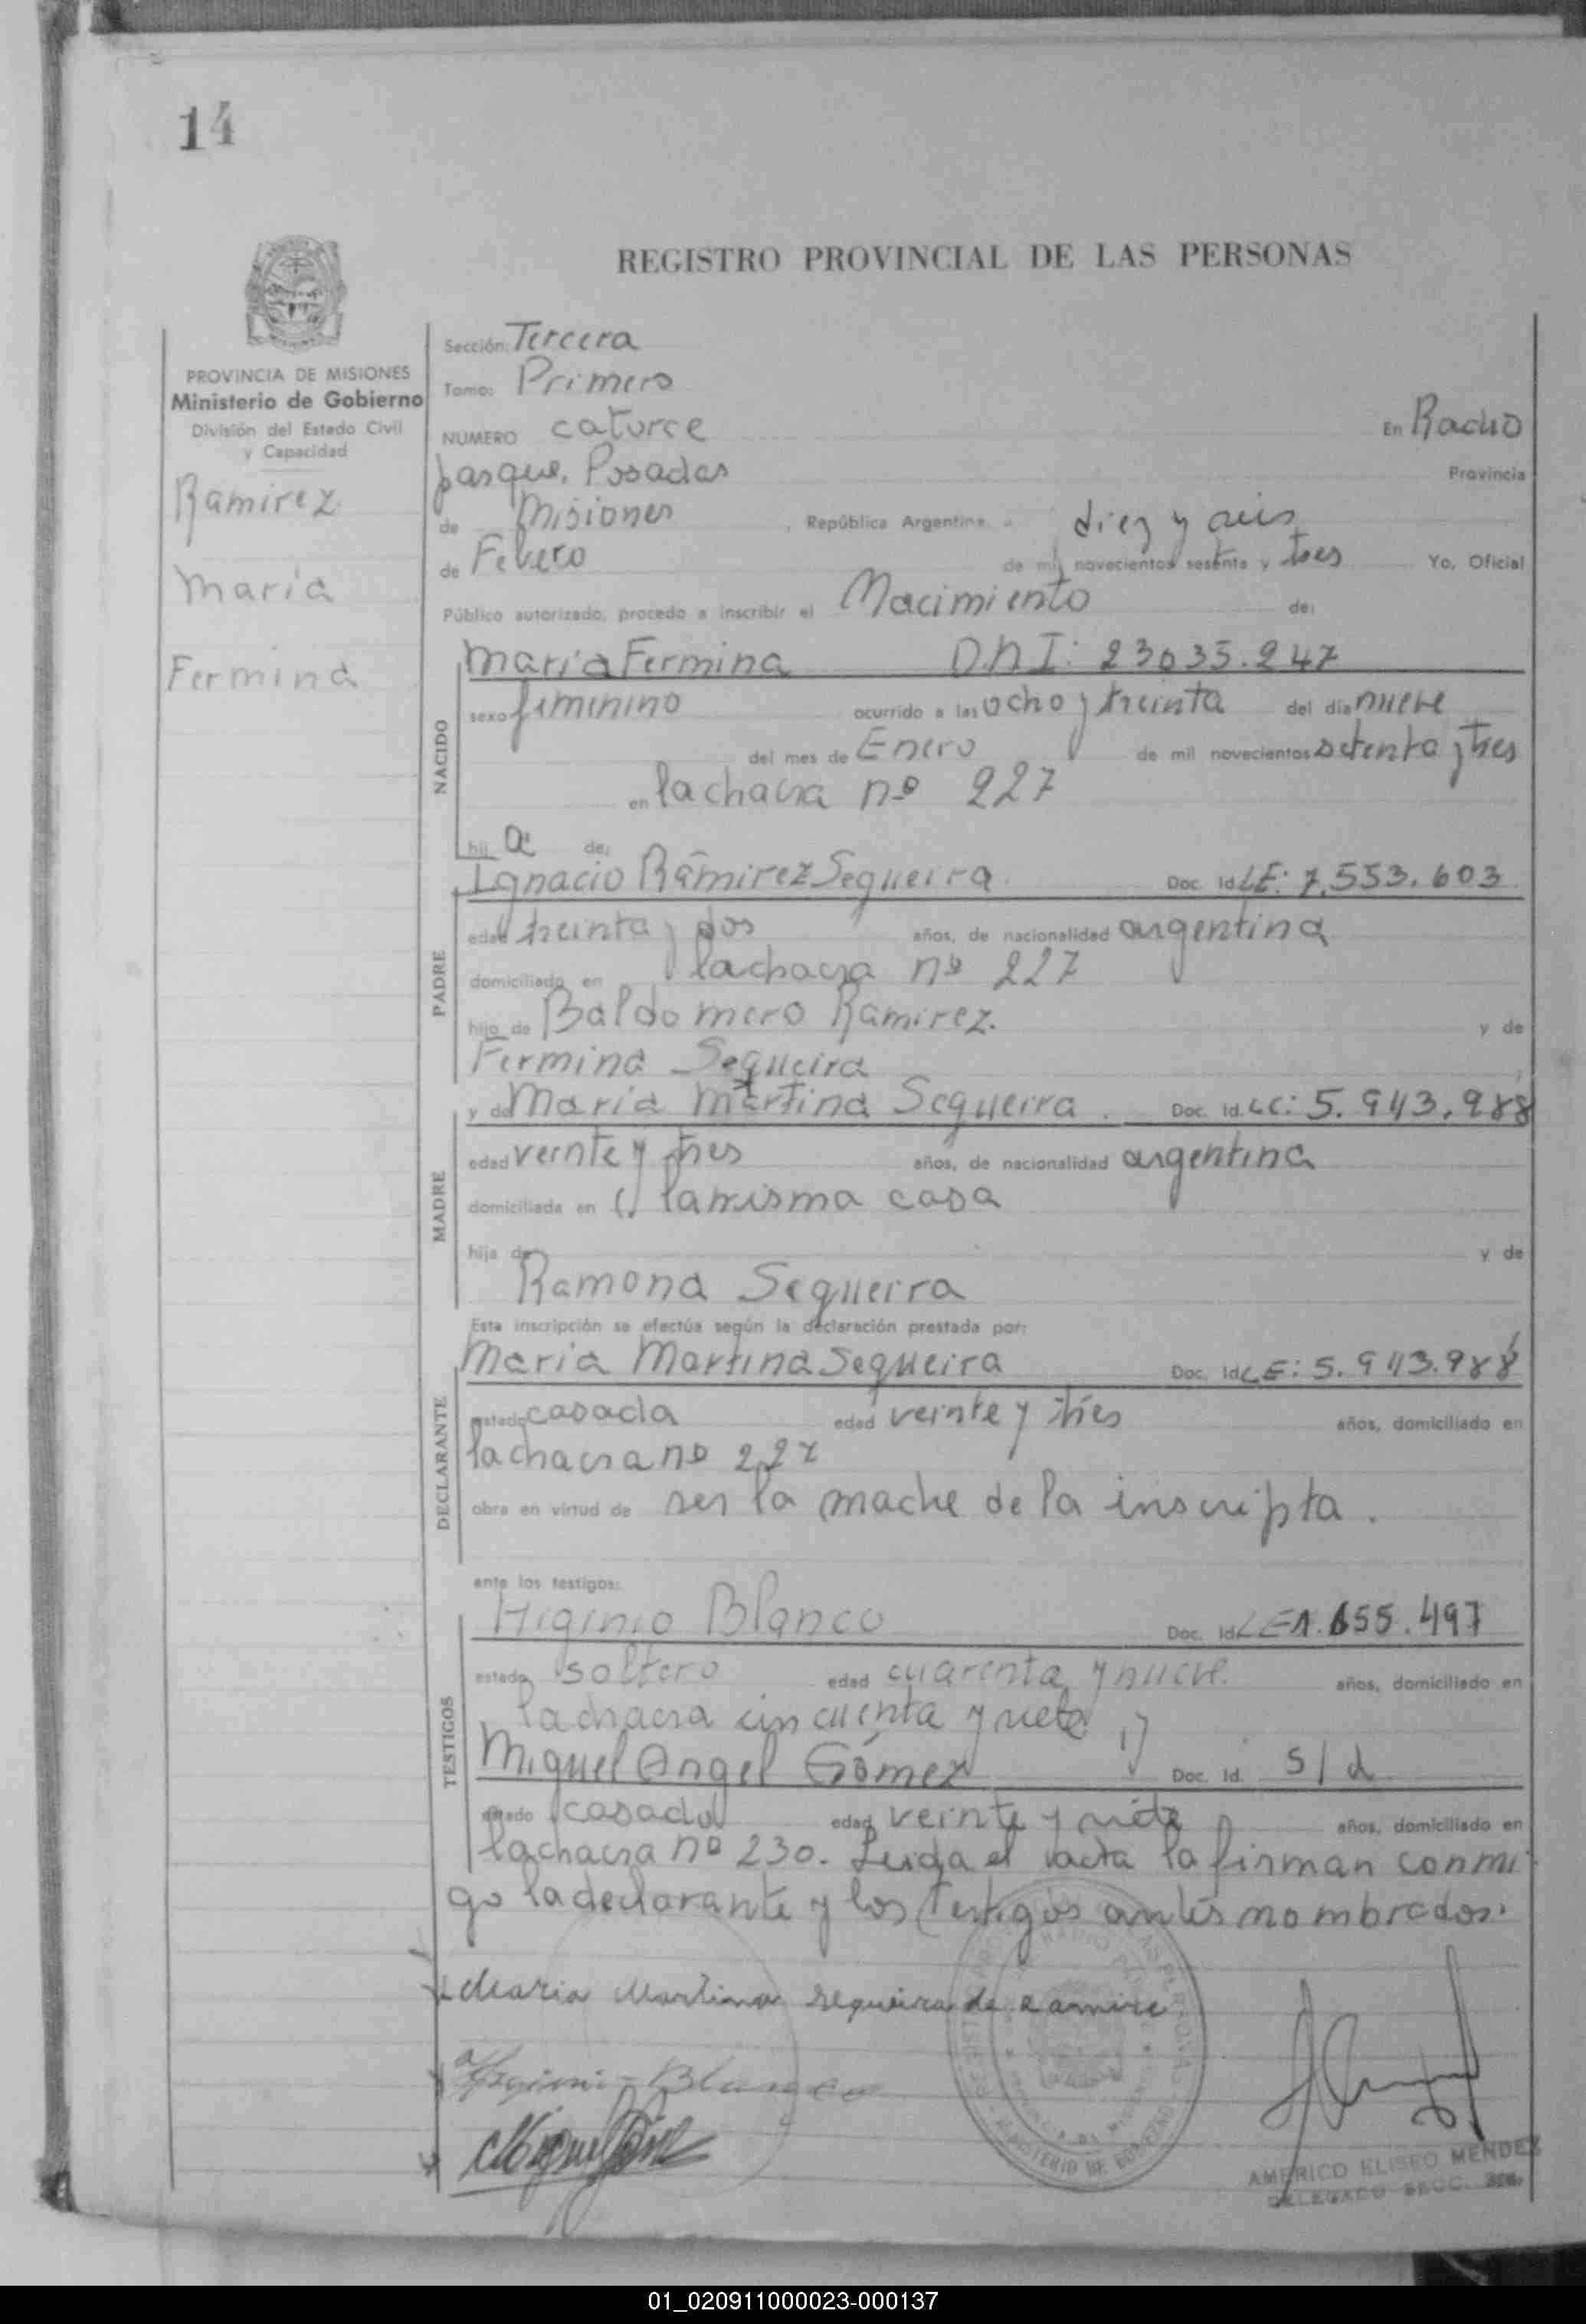 14
REGISTRO PROVINCIAL DE LAS PERSONAS
PROVINCIA DE MISIONES
Ministerio de Gobierno
División del Estado Civil
y Capacidad
Ramirez
María
Fermina
Sección: Tercera
Tomo: Primero
NUMERO catorce En Racho
parque, Posadas Provincia
de Misiones , República Argentina a diez y seis
de Febrero de mil novecientos sesenta y tres Yo, Oficial
Público autorizado, procedo a inscribir el Nacimiento de:
NACIDO
Maria Fermina D.N.I: 23035.247
sexo femenino ocurrido a las ocho y treinta del dia nueve
del mes de Enero de mil novecientos setenta y tres
en la chacra nº 227
hij a de:
PADRE
Ignacio Ramirez Segueira. Doc. Id. LE: 7.553.603
edad treinta y dos años, de nacionalidad argentina
domiciliado en la chacra nº 227
hijo de Baldomero Ramirez. y de
Fermina Sequeira
MADRE
y de Maria Martina Sequeira. Doc. Id. LC: 5.943.988
edad veinte y tres años, de nacionalidad argentina
domiciliada en la misma casa
hija de y de
Ramona Sequeira
Esta inscripción se efectúa según la declaración prestada por:
DECLARANTE
Maria Martina Sequeira Doc. Id. LE: 5.943.988
estado casada edad veinte y tres años, domiciliado en
la chacra nº 227
obra en virtud de ser la madre de la inscripta.
ante los testigos:
TESTIGOS
Higinio Blanco Doc. Id. LE 1.655.497
estado soltero edad cuarenta y nueve. años, domiciliado en
la chacra cincuenta y siete y
Miguel Angel Gómez Doc. Id. S/d
estado casado edad veinte y siete años, domiciliado en
la chacra nº 230. Leida el acta la firman conmi
go la declarante y los testigos antes nombrados.
Maria Martina Sequeira de Ramire
Higinio Blanco
AMERICO ELISEO MENDEZ
DELEGADO SECC. 3ra.
01_020911000023-000137